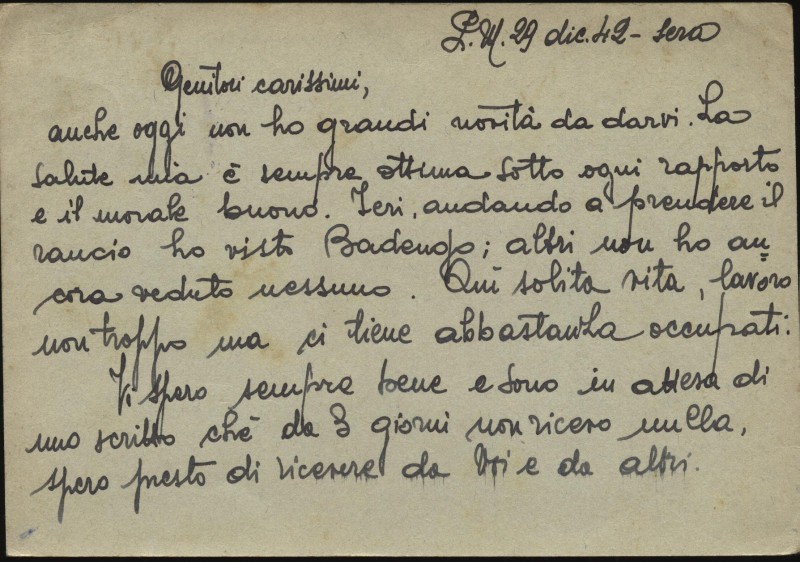 P.M. 29 dic. 42 - sera
Genitori carissimi,
anche oggi non ho grandi novità da darvi. La
salute mia è sempre ottima sotto ogni rapporto
e il morale buono. Ieri, andando a prendere il
rancio ho visto
; altri non ho an=
cora veduto nessuno. Qui solita vita, lavoro
non troppo ma ci tiene abbastanza occupati.
Vi spero sempre bene e sono in attesa di
uno scritto chè da 3 giorni non ricevo nulla,
spero presto di ricevere da Voi e da altri.